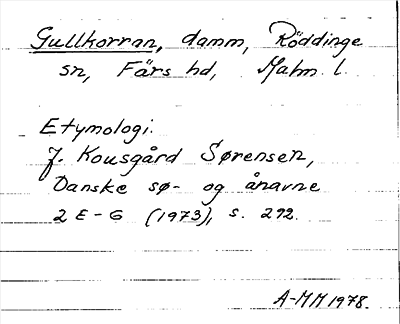 Gullkorran, damm, Röddinge
sn, Färs hd, Malm. l.
Etymologi:
J. Kousgård Sørensen,
Danske sø- og ånavne
2 E-G (1973), s. 292.
A-MM 1978.